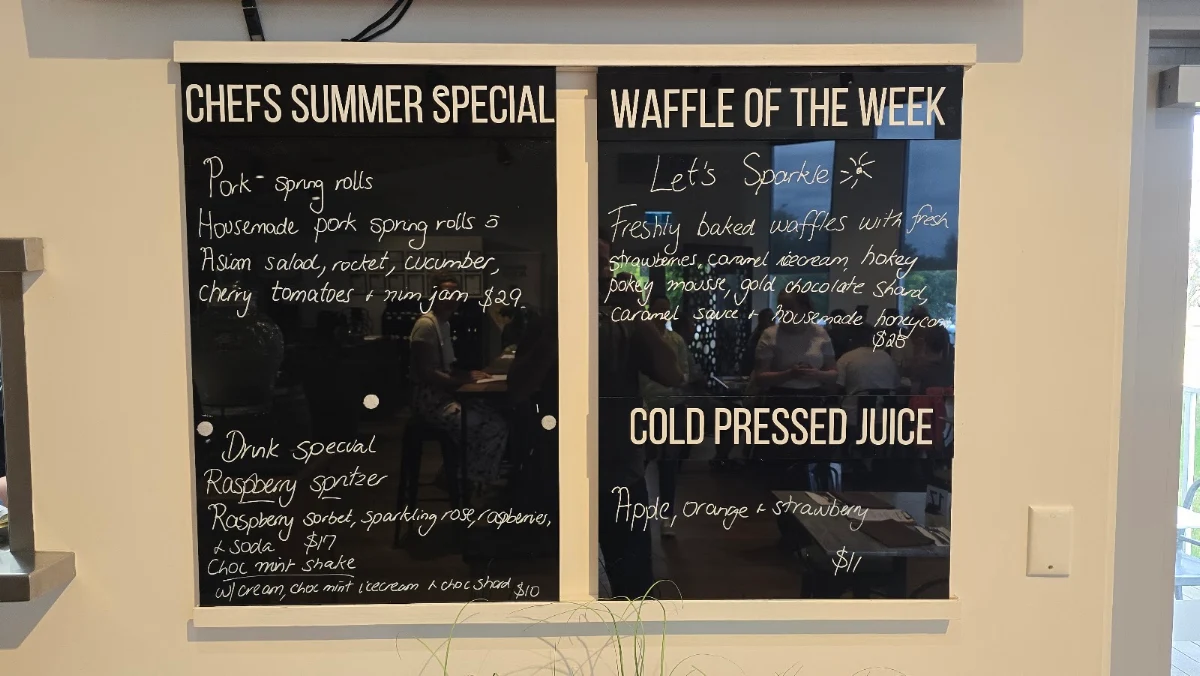 CHEFS SUMMER SPECIAL
Pork - spring rolls
Housemade pork spring rolls
Asian salad, rocket, cucumber,
cherry tomatoes + nim jam $29
Drink special
Raspberry spritzer
Raspberry sorbet, sparkling rose, raspberries,
+ soda $17
Choc mint shake
w/ cream, choc mint icecream + choc shard $10
WAFFLE OF THE WEEK
Let's Sparkle
Freshly baked waffles with fresh
strawberries, caramel icecream, hokey
pokey mousse, gold chocolate shard,
caramel sauce + housemade honeycomb
COLD PRESSED JUICE
Apple, orange + strawberry
$11